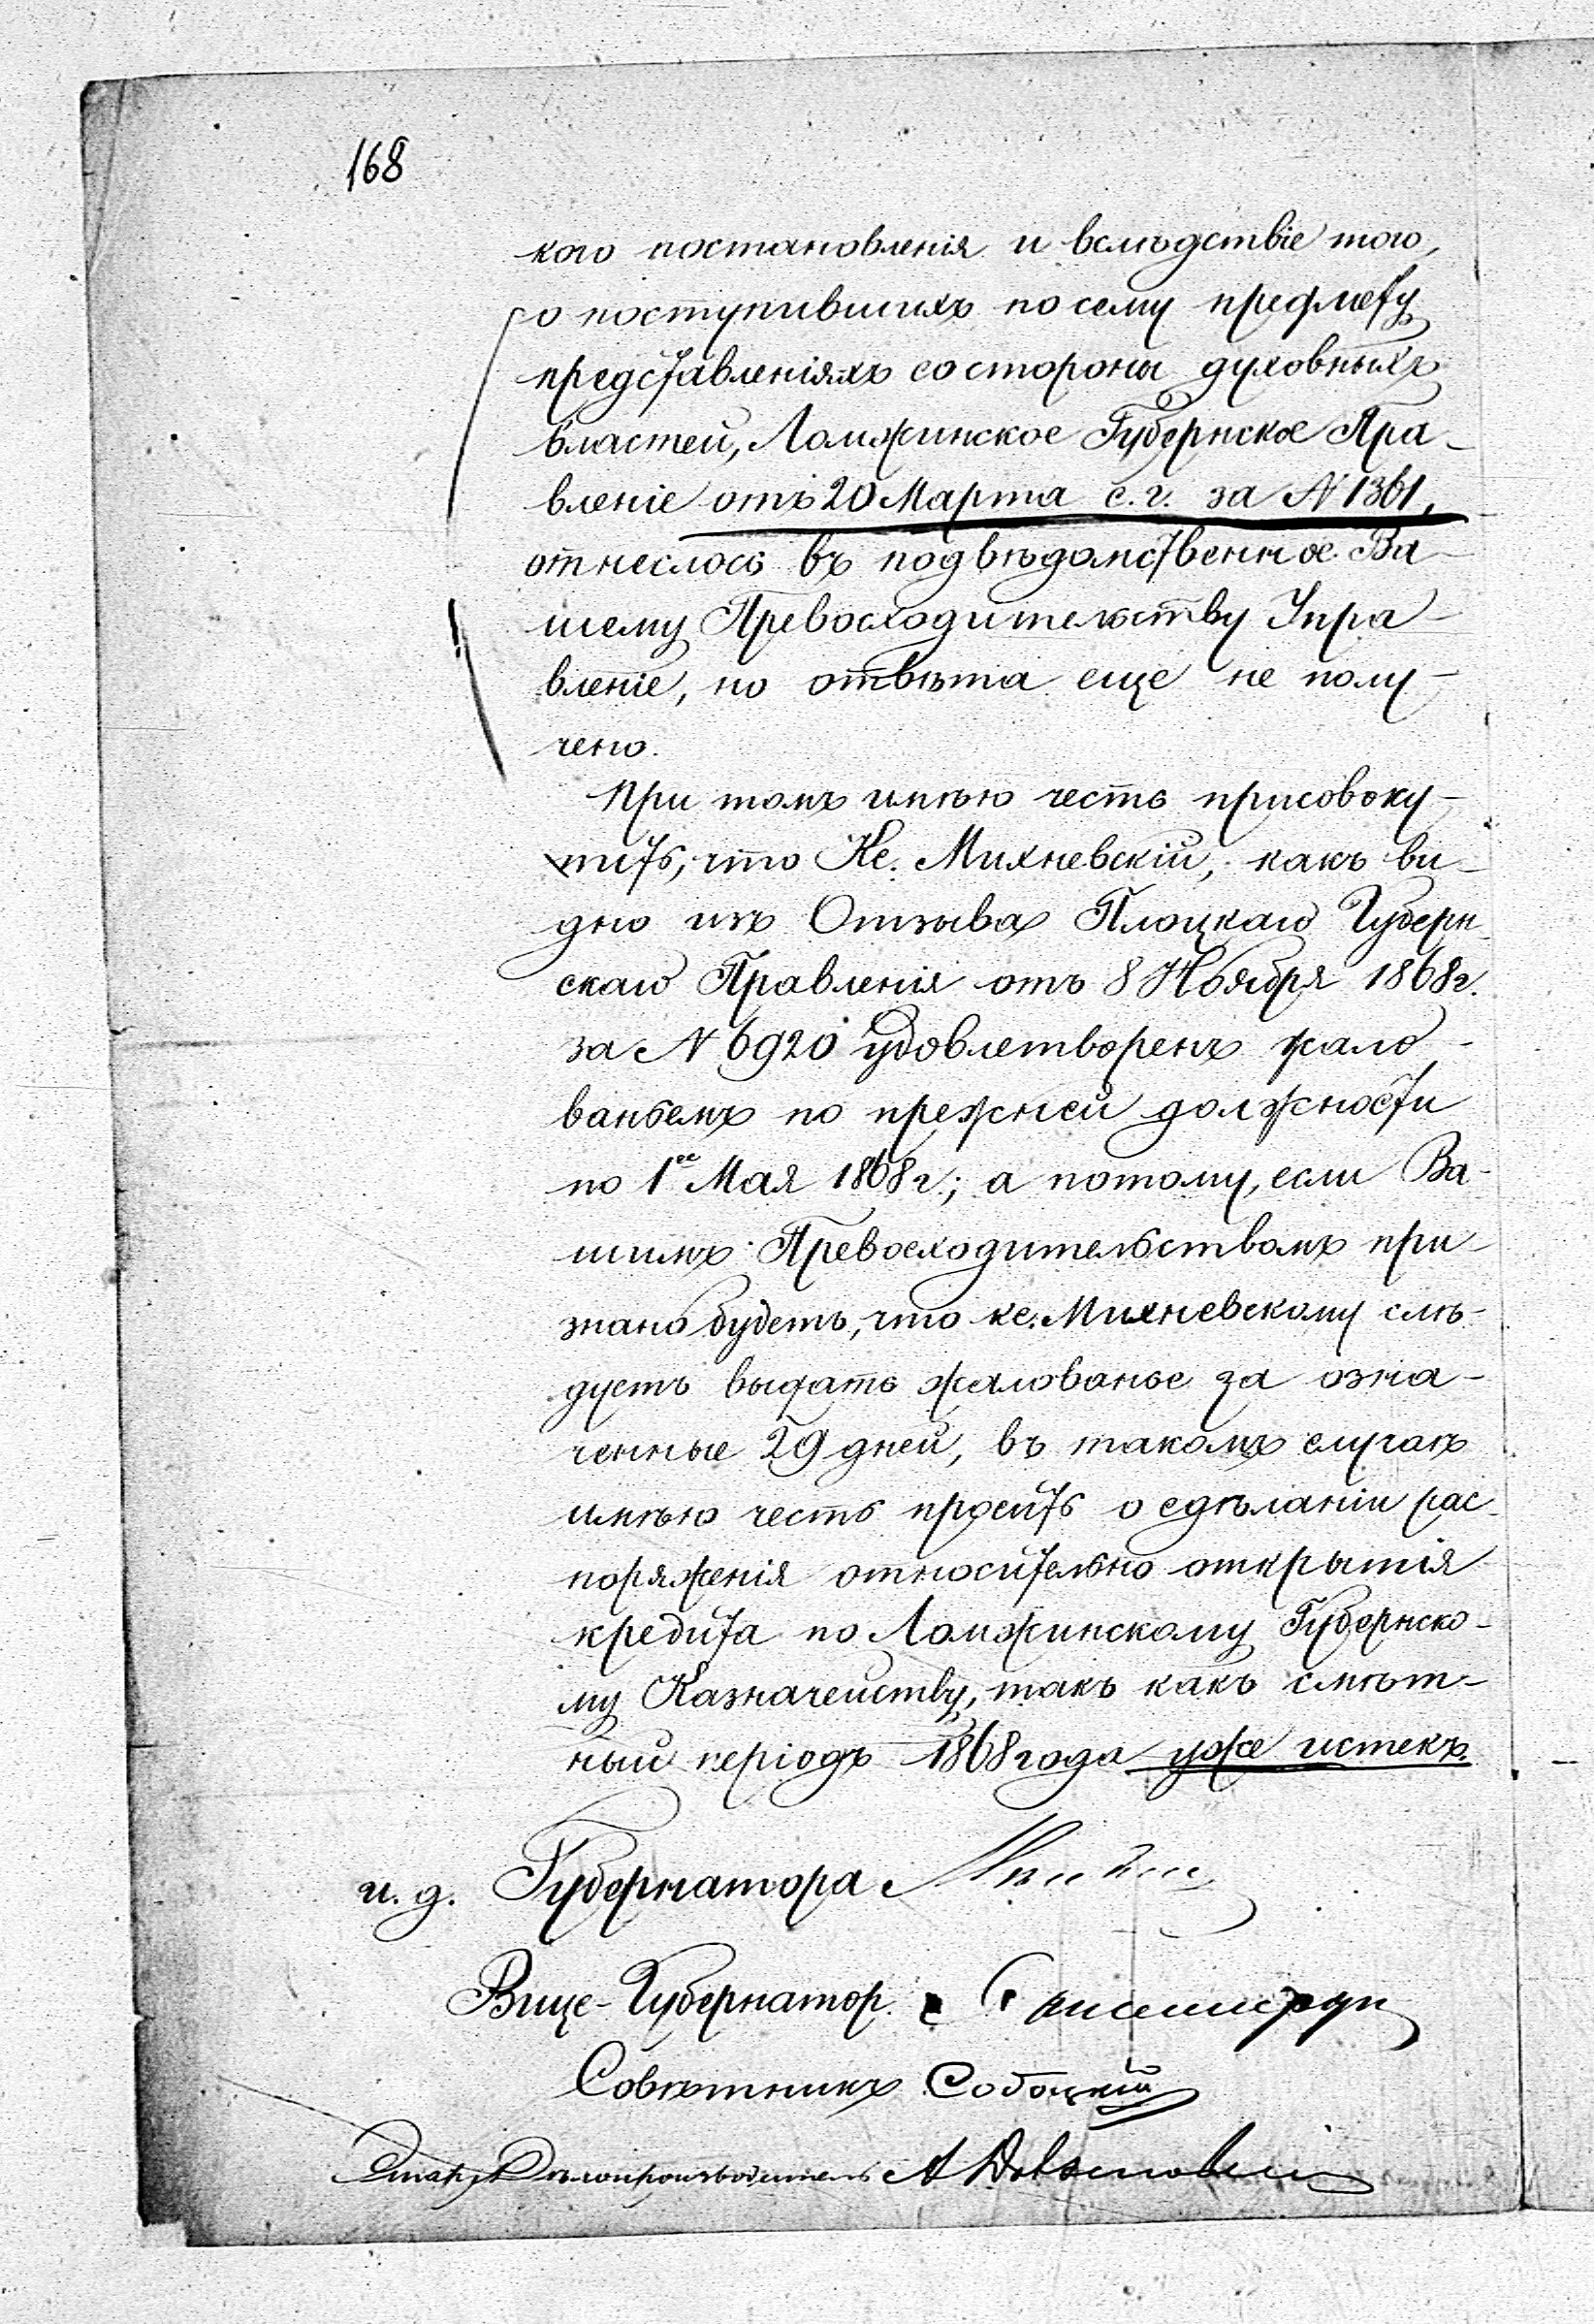 168
кого постановленія и вслѣдствіе того,
о поступившихъ по сему предмету
представленіяхъ со стороны духовныхъ
властей, Ломжинское Губернское Пра-
вленіе отъ 20 Марта с. г. за N 1361,
отнеслось въ подвѣдомственное Ва-
шему Превосходительству Упра-
вленіе, но отвѣта еще не полу-
чено.
При томъ имѣю честь присовоку-
пить, что Кс. Михневскій, какъ ви-
дно изъ Отзыва Плоцкаго Губерн-
скаго Правленія отъ 8 Ноября 1868 г.
за N 6920 удовлетворенъ жало-
ваньемъ по прежней должности
по 1ое Мая 1868 г.; а потому, если Ва-
шимъ Превосходительствомъ при-
знано будетъ, что кс. Михневскому слѣ-
дуетъ выдать жалованье за озна-
ченные 29 дней, въ такомъ случаѣ
имѣю честь просить о сдѣланіи рас-
поряженія относительно открытія
кредита по Ломжинскому Губернско-
му Казначейству, такъ какъ смѣт-
ный періодъ 1868 года уже истекъ.
и. д. Губернатора
Вице-Губернатор.
Совѣтникъ Собоцкій
Делопроизводитель А